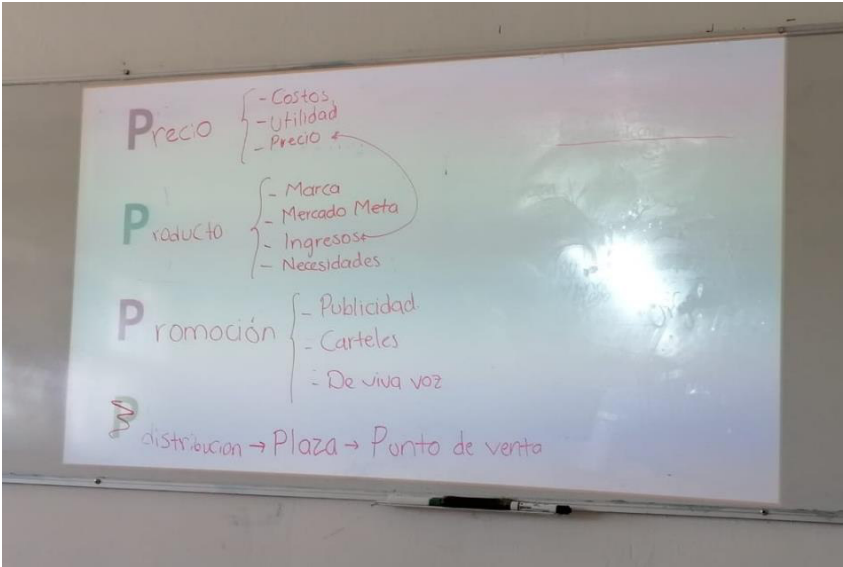 Precio { - Costos
- Utilidad
- Precio
Producto { - Marca
- Mercado Meta
- Ingresos
- Necesidades
Promoción { - Publicidad.
- Carteles
- De viva voz
P distribucion → Plaza → Punto de venta